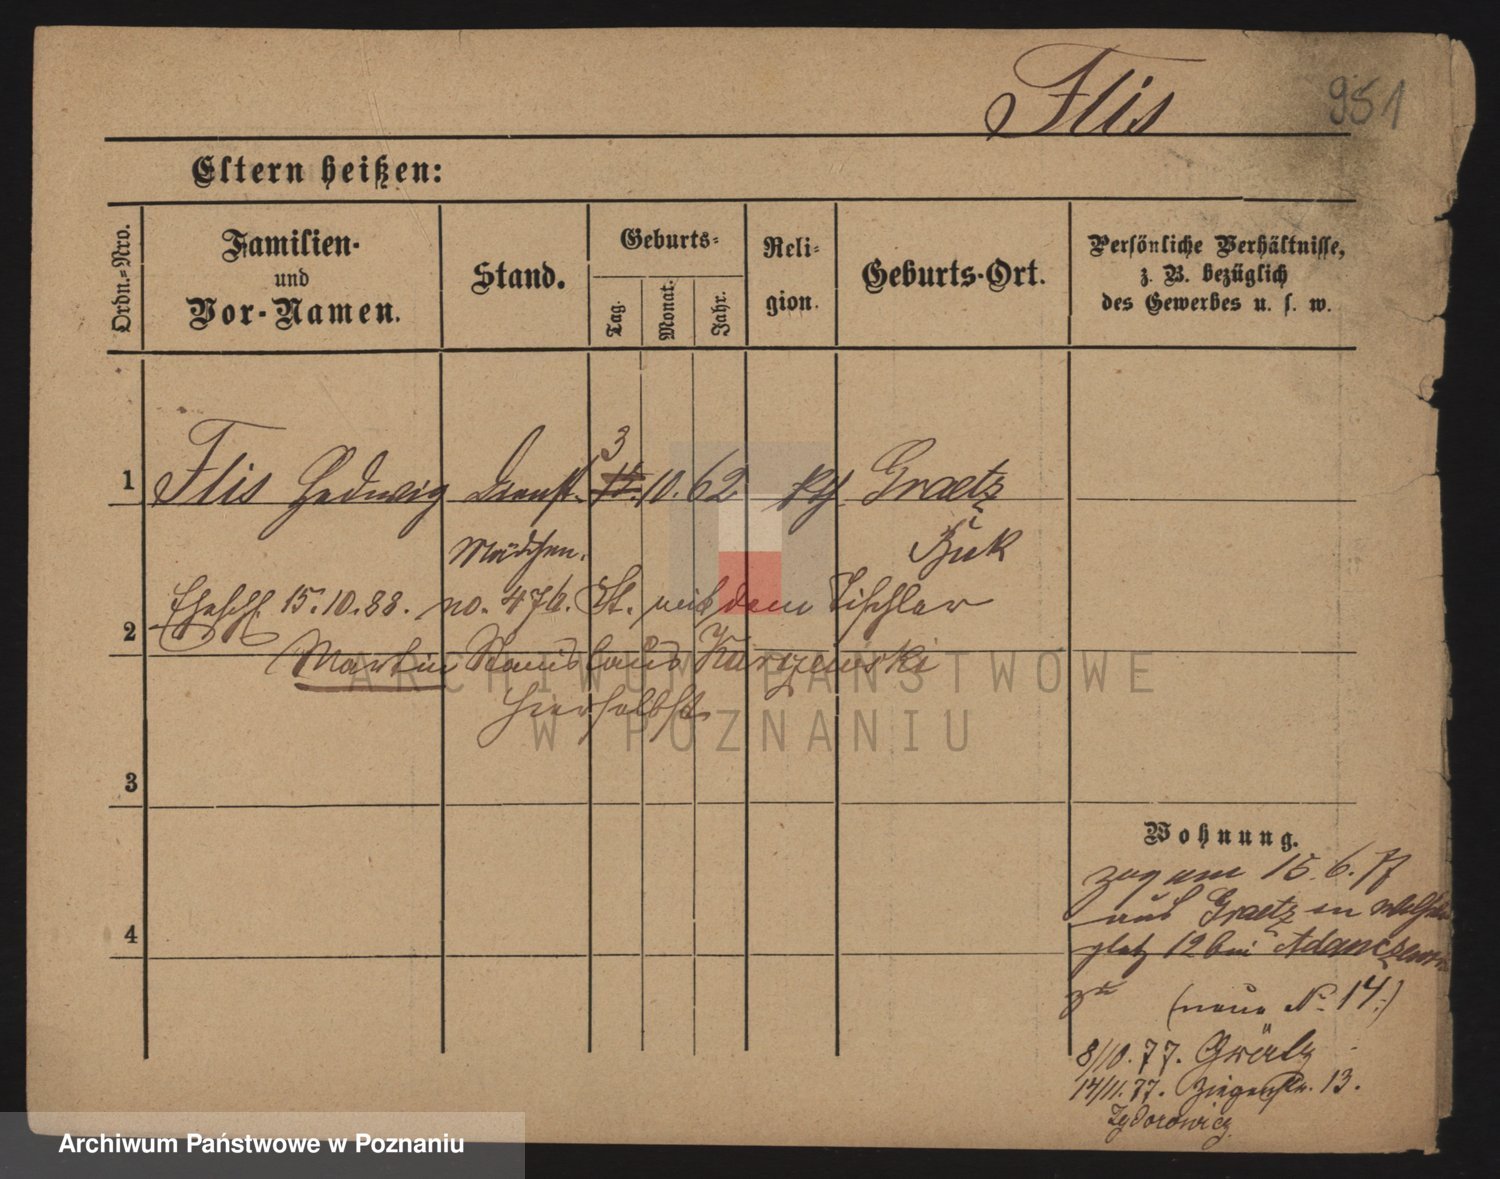 Flis
951
Eltern heißen:
Ordn.-Nro.
Familien-
und
Vor-Namen.
Stand.
Geburts-
Tag.
Monat.
Jahr.
Reli-
gion.
Geburts-Ort.
Persönliche Verhältnisse,
z. B. bezüglich
des Gewerbes u. s. w.
1 Flis Hedwig Dienst- 3 10. 62 kth Graetz
Mädchen. Buk
Eheschl 15.10.88. no. 476. St. mit dem Tischler
2
Martin Stanislaus Karzewski
hierselbst
3
Wohnung.
zog am 15.6.77
aus Graetz in
4
platz 12 bei Adamczewski
zu (neue No 14.)
8/10.77. Grätz
14/11.77. Ziegenstr. 13.
Sydorowicz
ARCHIWUM PAŃSTWOWE
W POZNANIU
Archiwum Państwowe w Poznaniu